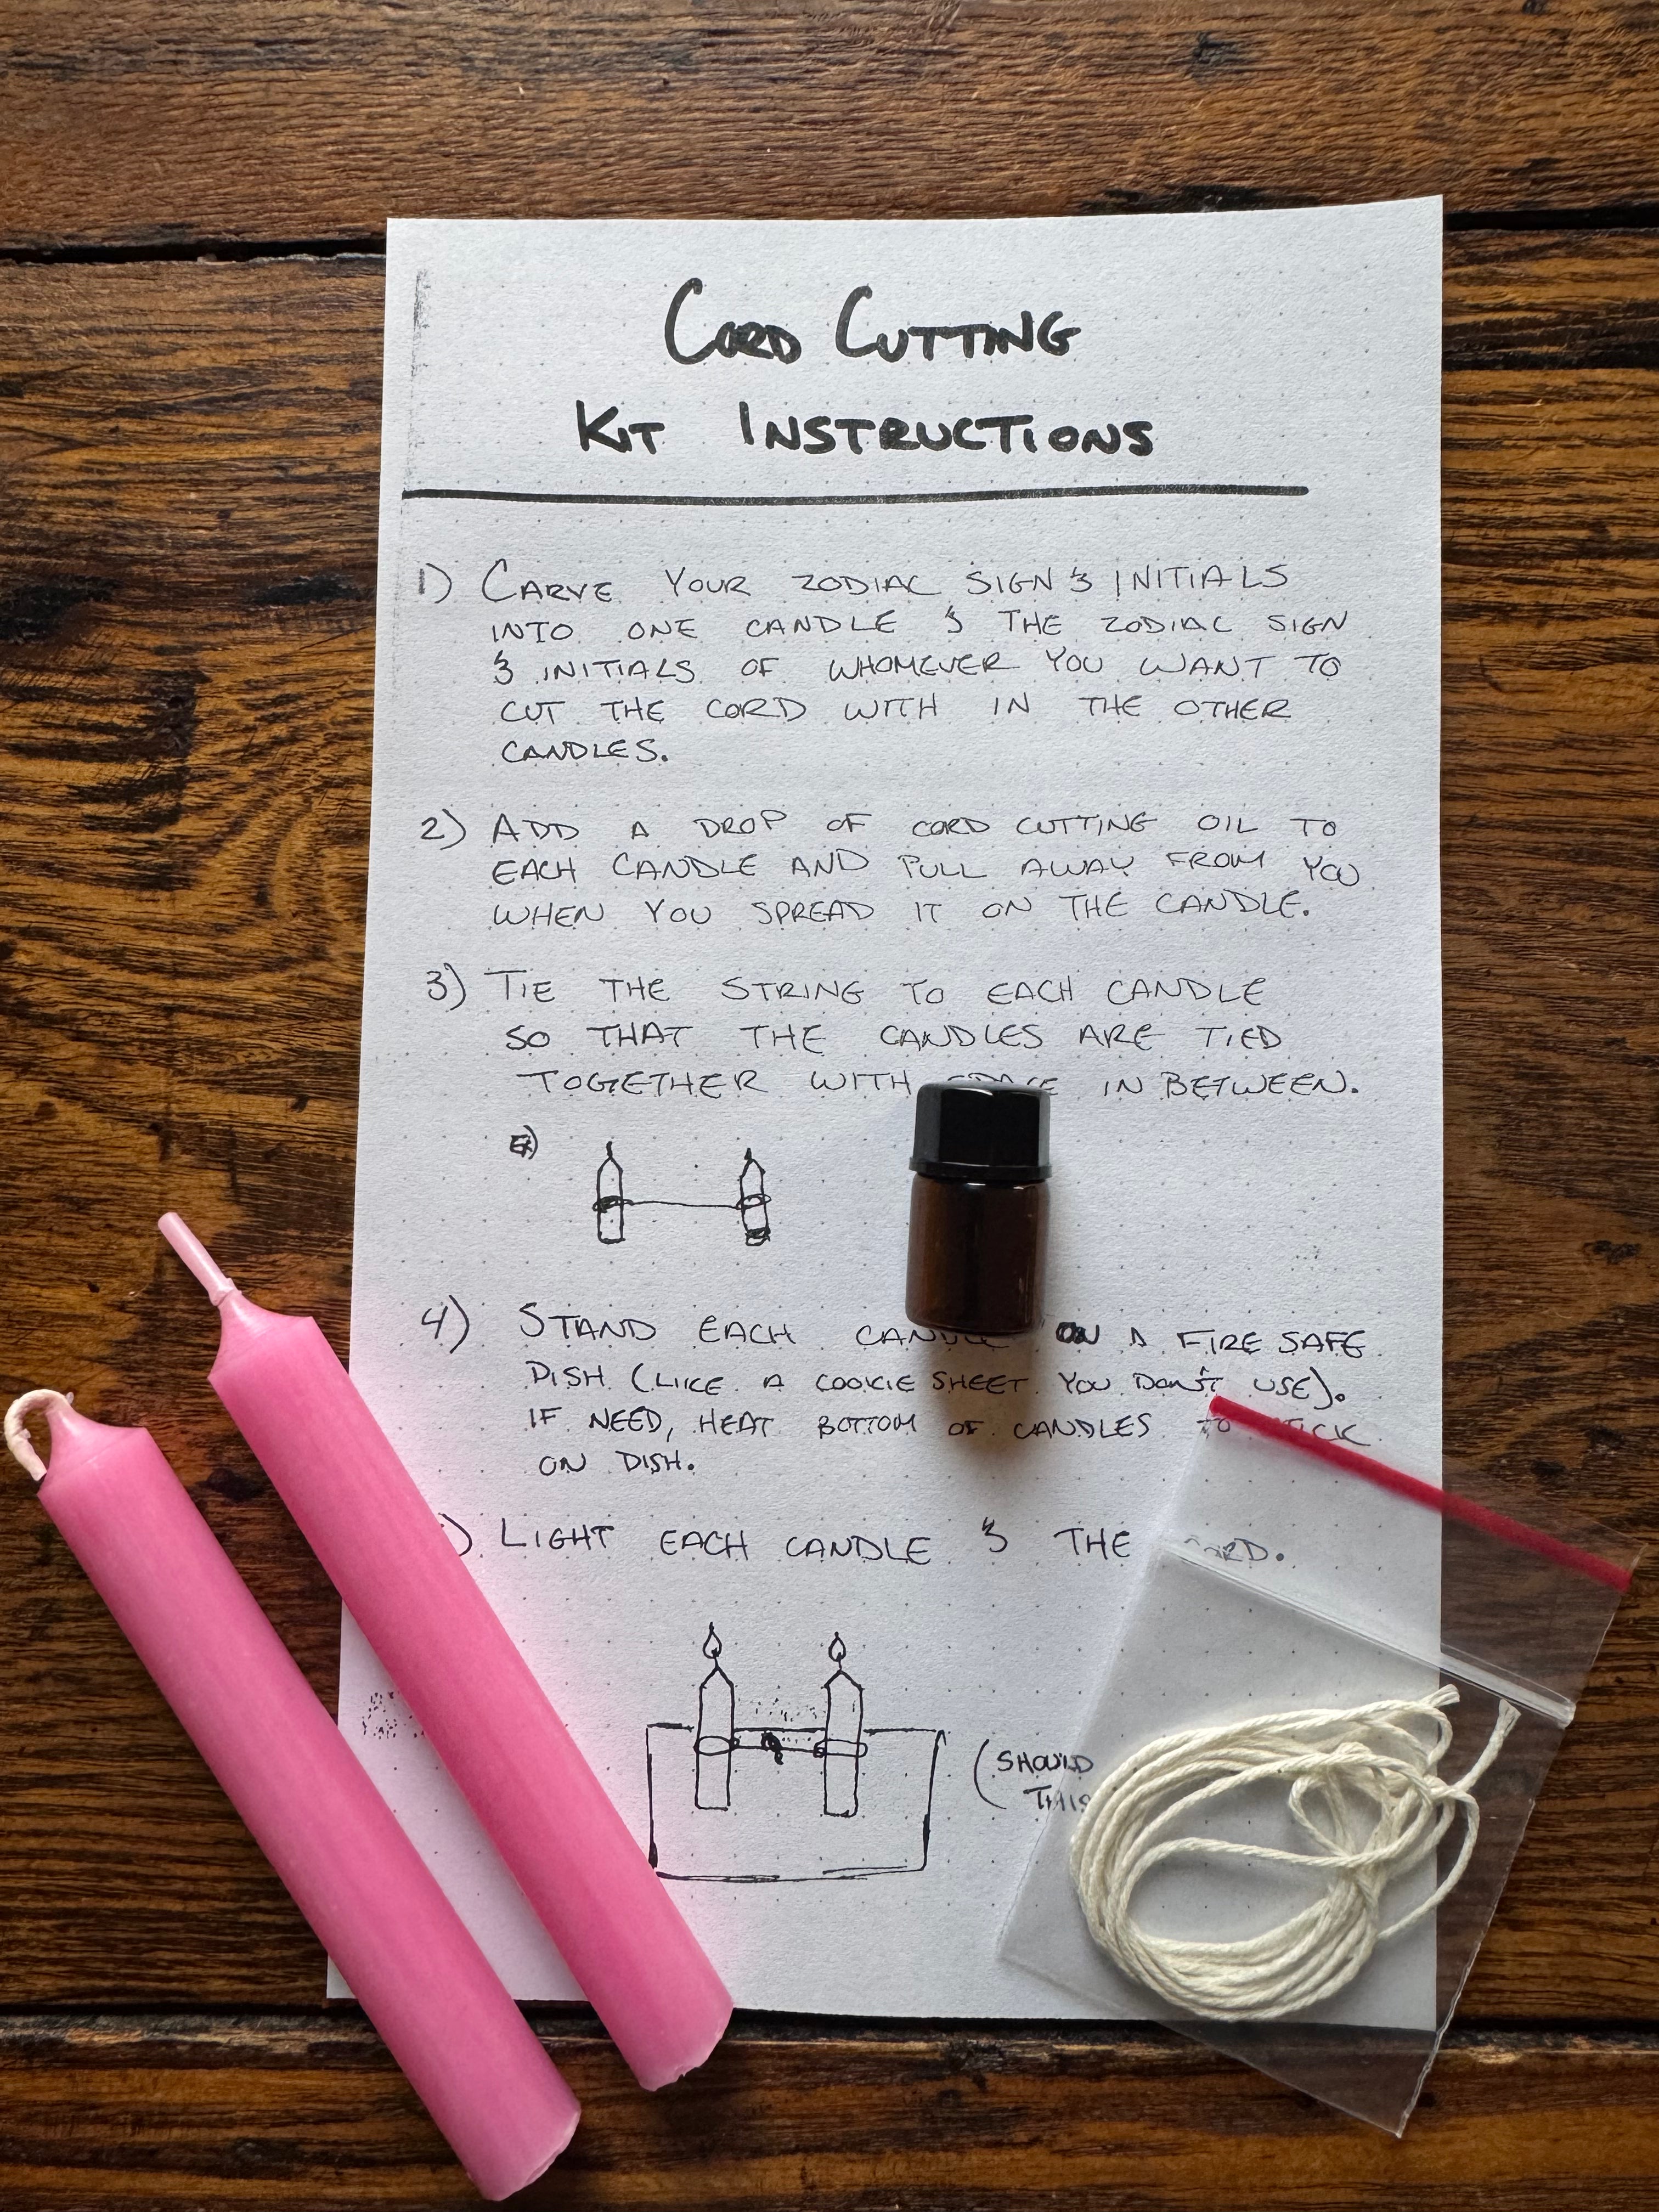 CORD CUTTING
KIT INSTRUCTIONS
1) CARVE YOUR ZODIAC SIGN & INITIALS
INTO ONE CANDLE & THE ZODIAC SIGN
& INITIALS OF WHOMEVER YOU WANT TO
CUT THE CORD WITH IN THE OTHER
CANDLES.
2) ADD A DROP OF CORD CUTTING OIL TO
EACH CANDLE AND PULL AWAY FROM YOU
WHEN YOU SPREAD IT ON THE CANDLE.
3) TIE THE STRING TO EACH CANDLE
SO THAT THE CANDLES ARE TIED
TOGETHER WITH SPACE IN BETWEEN.
EX)
4) STAND EACH CANDLE ON A FIRE SAFE
DISH (LIKE A COOKIE SHEET YOU DON'T USE).
IF NEED, HEAT BOTTOM OF CANDLES TO STICK
ON DISH.
) LIGHT EACH CANDLE & THE CORD.
(SHOULD
THIS